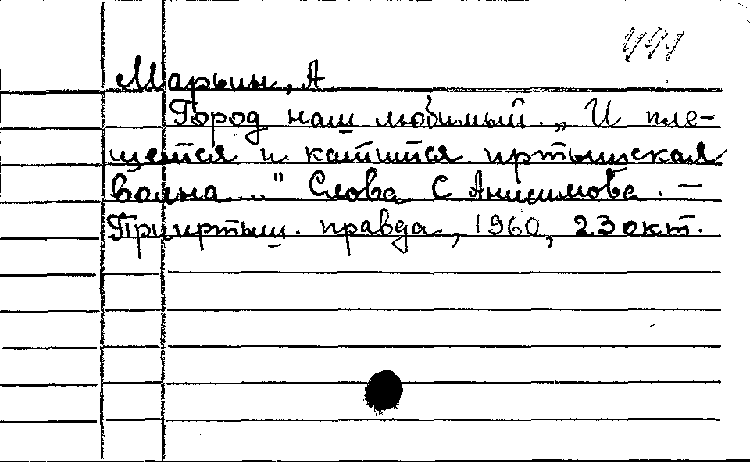 Марьин, А
Город наш любимый. „И пле-
щется и катится иртышская
волна..." Слова С Анисимова. —
Прииртыш. правда, 1960, 23 окт.